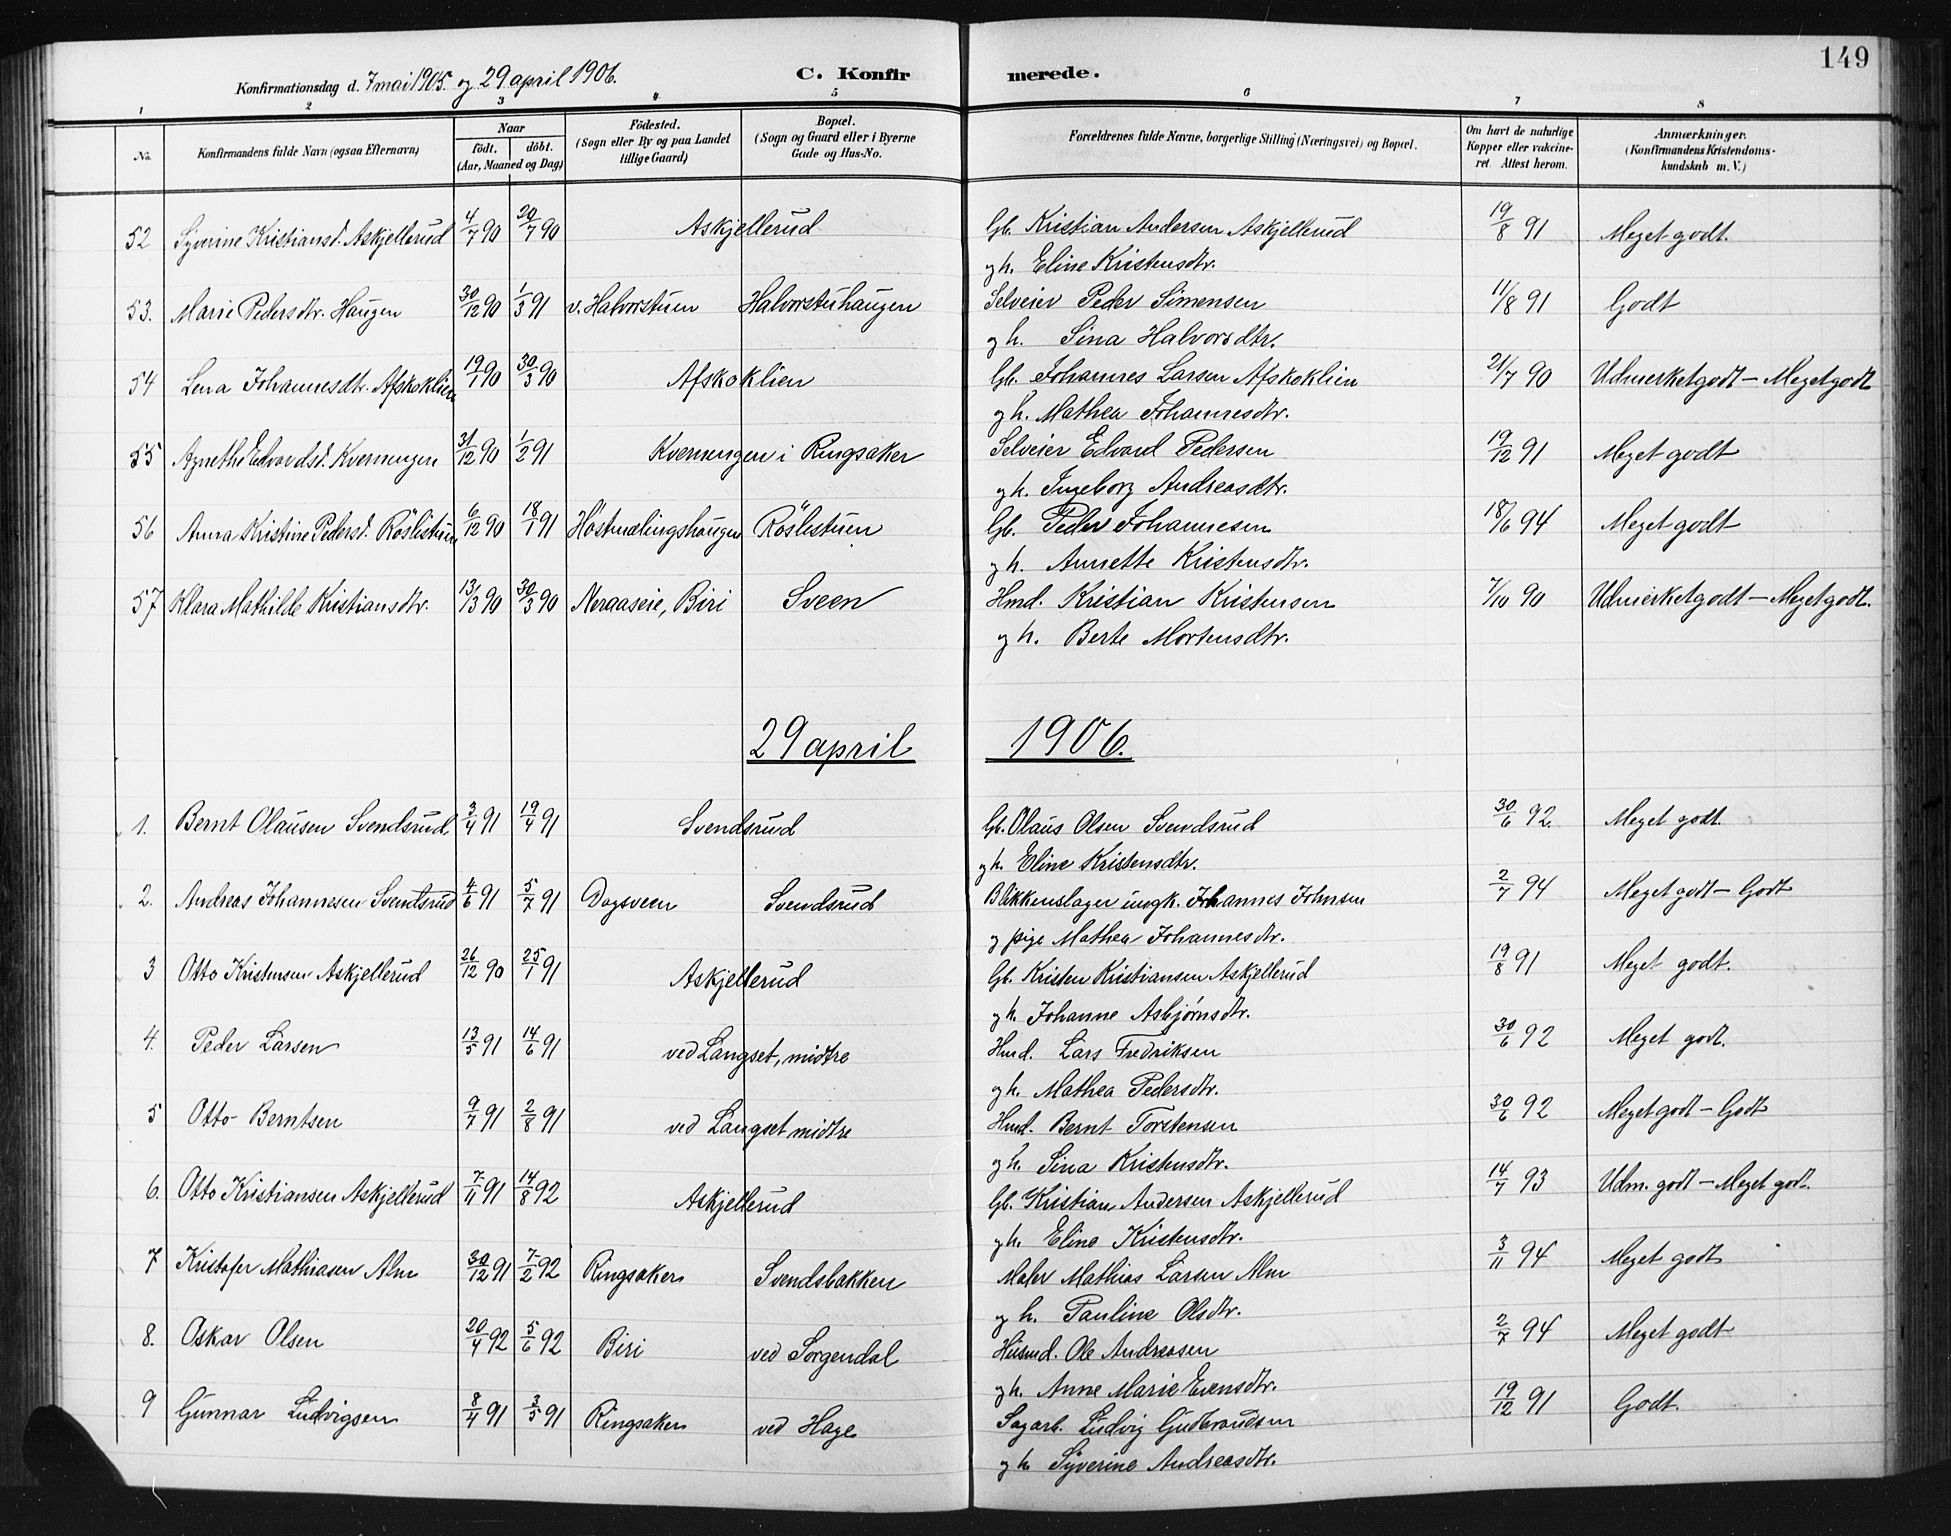 149
Konfirmationsdag d. 7 mai 1905. og 29 april 1906. C. Konfirmerede.
1 2 3 4 5 6 7 8
No. Konfirmandens fulde Navn (ogsaa Efternavn) Naar födt. döbt. (Aar, Maaned og Dag) Födested. (Sogn eller By og paa Landet tillige Gaard) Bopæl. (Sogn og Gaard eller i Byerne Gade og Hus-No. Forældrenes fulde Navne, borgerlige Stilling (Næringsvei) og Bopæl. Om havt de naturlige Kopper eller vakcineret. Attest herom. Anmærkninger. (Konfirmandens Kristendomskundskab m. V.)
52 Syverine Kristiansd. Askjellerud 4/7 90 20/7 90 Askjellerud Gb. Kristian Andersen Askjellerud 19/8 91 Meget godt.
og h. Eline Kristensdtr.
53. Marie Pedersdtr. Haugen 30/12 90 1/3 91 v. Halvorstuen Halvorstuhaugen Selveier Peder Simensen 11/8 91 Godt
og h. Sina Halvorsdtr.
54 Lena Johannesdt. Afskoklien 19/1 90 30/3 90 Afskoklien Gb. Johannes Larsen Afskoklien 21/7 90 Udmerketgodt – Megetgodt
og h. Mathea Johannesdtr.
55 Agnethe Edvardsd. Kvernengen 31/12 90 1/2 91 Kvernengen i Ringsaker Selveier Edvard Pedersen 19/12 91 Meget godt
og h. Ingeborg Andreasdtr.
56 Anna Kristine Pedersd. Röslistuen 6/12 90 18/1 91 Höstmælingshaugen Röslistuen Gb. Peder Johannesen 18/6 94 Meget godt
og h. Annette Kristensdtr.
57 Klara Mathilde Kristiansdtr. 13/3 90 30/3 90 Neraaseie, Biri Sveen Hmd. Kristian Kristensen 7/10 90 Udmerketgodt – Megetgodt.
og h. Berte Mortensdtr.
29 april 1906.
1. Bernt Olausen Svendsrud 3/4 91 19/4 91 Svendsrud Gb. Olaus Olsen Svendsrud 30/6 92. Meget godt.
og h. Eline Kristensdtr.
2. Andreas Johannesen Svendsrud 4/6 91 5/7 91 Dagsveen Svendsrud Blikkenslager ungk. Johannes Johnsen 2/7 94 Meget godt – Godt
og pige Mathea Johannesdtr.
3 Otto Kristensen Askjellerud 26/12 90 25/1 91 Askjellerud Gb. Kristen Kristiansen Askjellerud 19/8 91 Meget godt.
og h. Johanne Asbjørnsdtr.
4. Peder Larsen 13/5 91 14/6 91 ved Langset, midtre Hmd. Lars Fredriksen 30/6 92 Meget godt.
og h. Mathea Pedersdtr.
5 Otto Berntsen 9/7 91 2/8 91 ved Langset midtre Hmd. Bernt Torstensen 30/6 92 Meget godt – Godt
og h. Sina Kristensdtr.
6. Otto Kristiansen Askjellerud 7/11 91 14/8 92 Askjellerud Gb. Kristian Andersen Askjellerud 14/7 93 Udm. godt – Meget godt.
og h. Eline Kristensdtr.
7 Kristofer Mathiasen Alm 30/12 91 7/2 92 Ringsaker Svendsbakken Maler Mathias Larsen Alm 3/11 94 Meget godt
og h. Pauline Olsdtr.
8. Oskar Olsen 20/4 92 5/6 92 Biri ved Sorgendal Husmd. Ole Andreasen 2/7 94 Meget godt
og h. Anne Marie Evensdtr.
9 Gunnar Ludvigsen 8/4 91 3/5 91 Ringsaker ved Hage Sagarb. Ludvig Gudbrandsen 19/12 91 Godt.
og h. Syverine Andreasdtr.